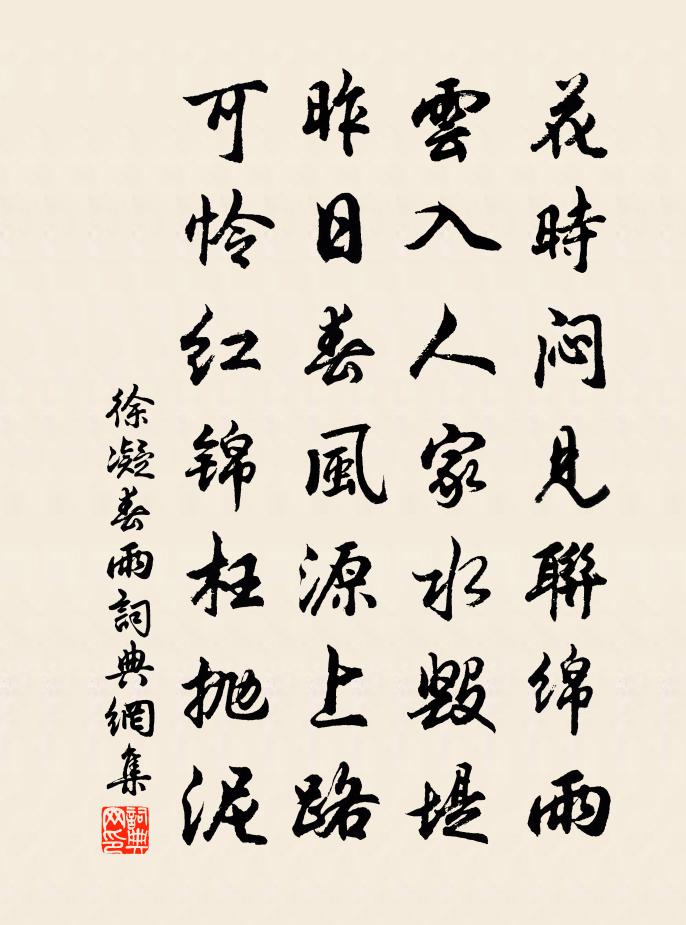 花時闷見聯绵雨
雲入人家水毁堤
昨日春風源上路
可怜红锦枉抛泥
徐凝春雨詞典網集
詞典網印